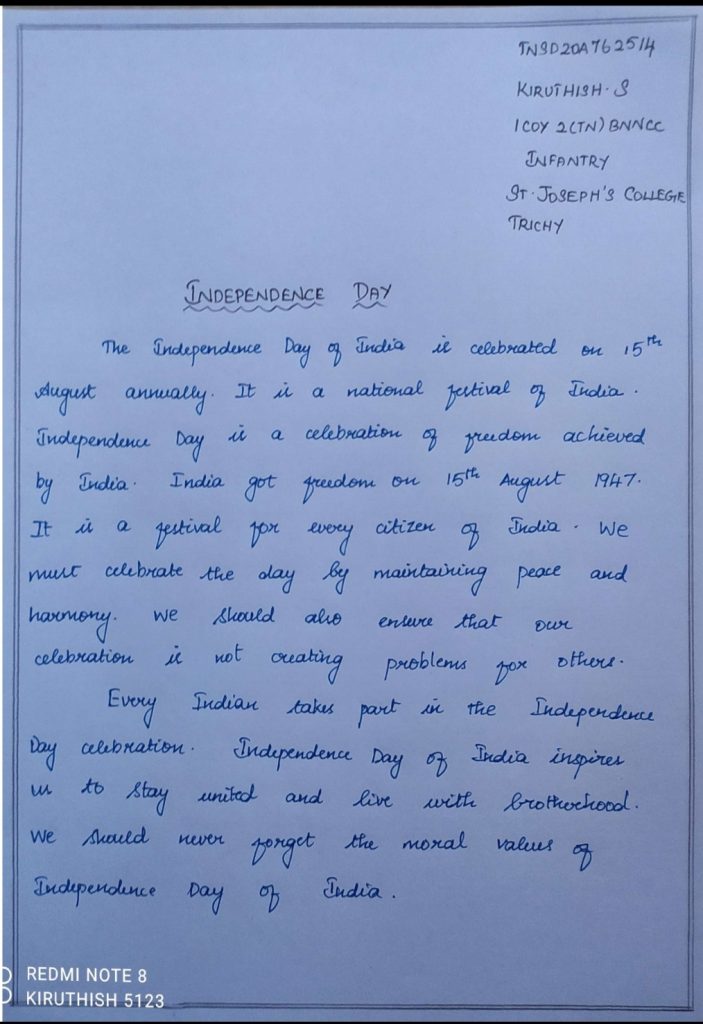 TNSD20A762514
KIRUTHISH. S
1 COY 2(TN) BNNCC
INFANTRY
ST. JOSEPH'S COLLEGE
TRICHY
INDEPENDENCE DAY
The Independence Day of India is celebrated on 15th
August annually. It is a national festival of India.
Independence Day is a celebration of freedom achieved
by India. India got freedom on 15th August 1947.
It is a festival for every citizen of India. We
must celebrate the day by maintaining peace and
harmony. We should also ensure that our
celebration is not creating problems for others.
Every Indian takes part in the Independence
Day celebration. Independence Day of India inspires
us to stay united and live with brotherhood.
We should never forget the moral values of
Independence Day of India.
REDMI NOTE 8
KIRUTHISH 5123